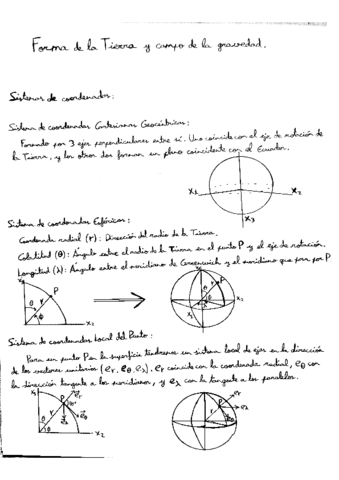 Forma de la Tierra y campo de la gravedad.
Sistemas de coordenadas:
Sistema de coordenadas Cartesianas Geocéntricas:
Formado por 3 ejes perpendiculares entre sí. Uno coincide con el eje de rotación de
la Tierra, y los otros dos forman un plano coincidente con el Ecuador.
X₁ X₂
X₃
Sistema de coordenadas Esféricas:
Coordenada radial (r): Dirección del radio de la Tierra.
Colatitud (θ): Ángulo entre el radio de la Tierra en el punto P y el eje de rotación.
Longitud (λ): Ángulo entre el meridiano de Greenwich y el meridiano que pasa por P
X₃ P r θ X₂
P r θ X₂
Sistema de coordenadas Local del Punto:
Para un punto P en la superficie tendremos un sistema local de ejes en la dirección
de los vectores unitarios (e_r, e_θ, e_λ). e_r coincide con la coordenada radial, e_θ con
la dirección tangente a los meridianos, y e_λ con la tangente a los paralelos.
X₃ P e_r θ r e_θ X₂
P e_r e_λ r e_θ